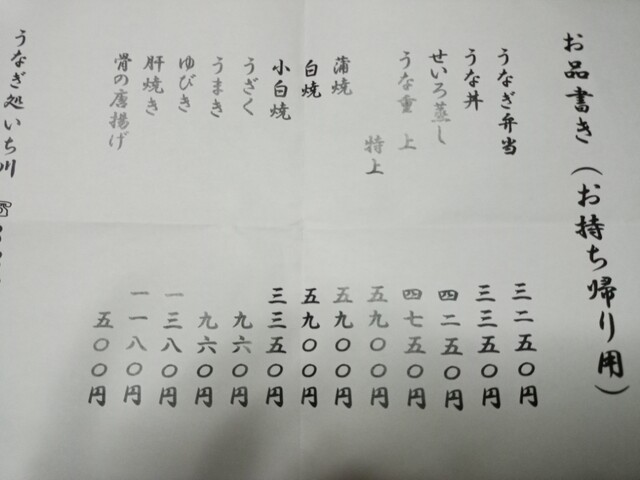 お品書き（お持ち帰り用）
うなぎ弁当 三二五〇円
うな丼 三三五〇円
せいろ蒸し 四二五〇円
うな重 上 四七五〇円
特上 五九〇〇円
蒲焼 五九〇〇円
白焼 五九〇〇円
小白焼 三三五〇円
うざく 九六〇円
うまき 九六〇円
ゆびき 一三八〇円
肝焼き 一一八〇円
骨の唐揚げ 五〇〇円
うなぎ処いち川 ☏